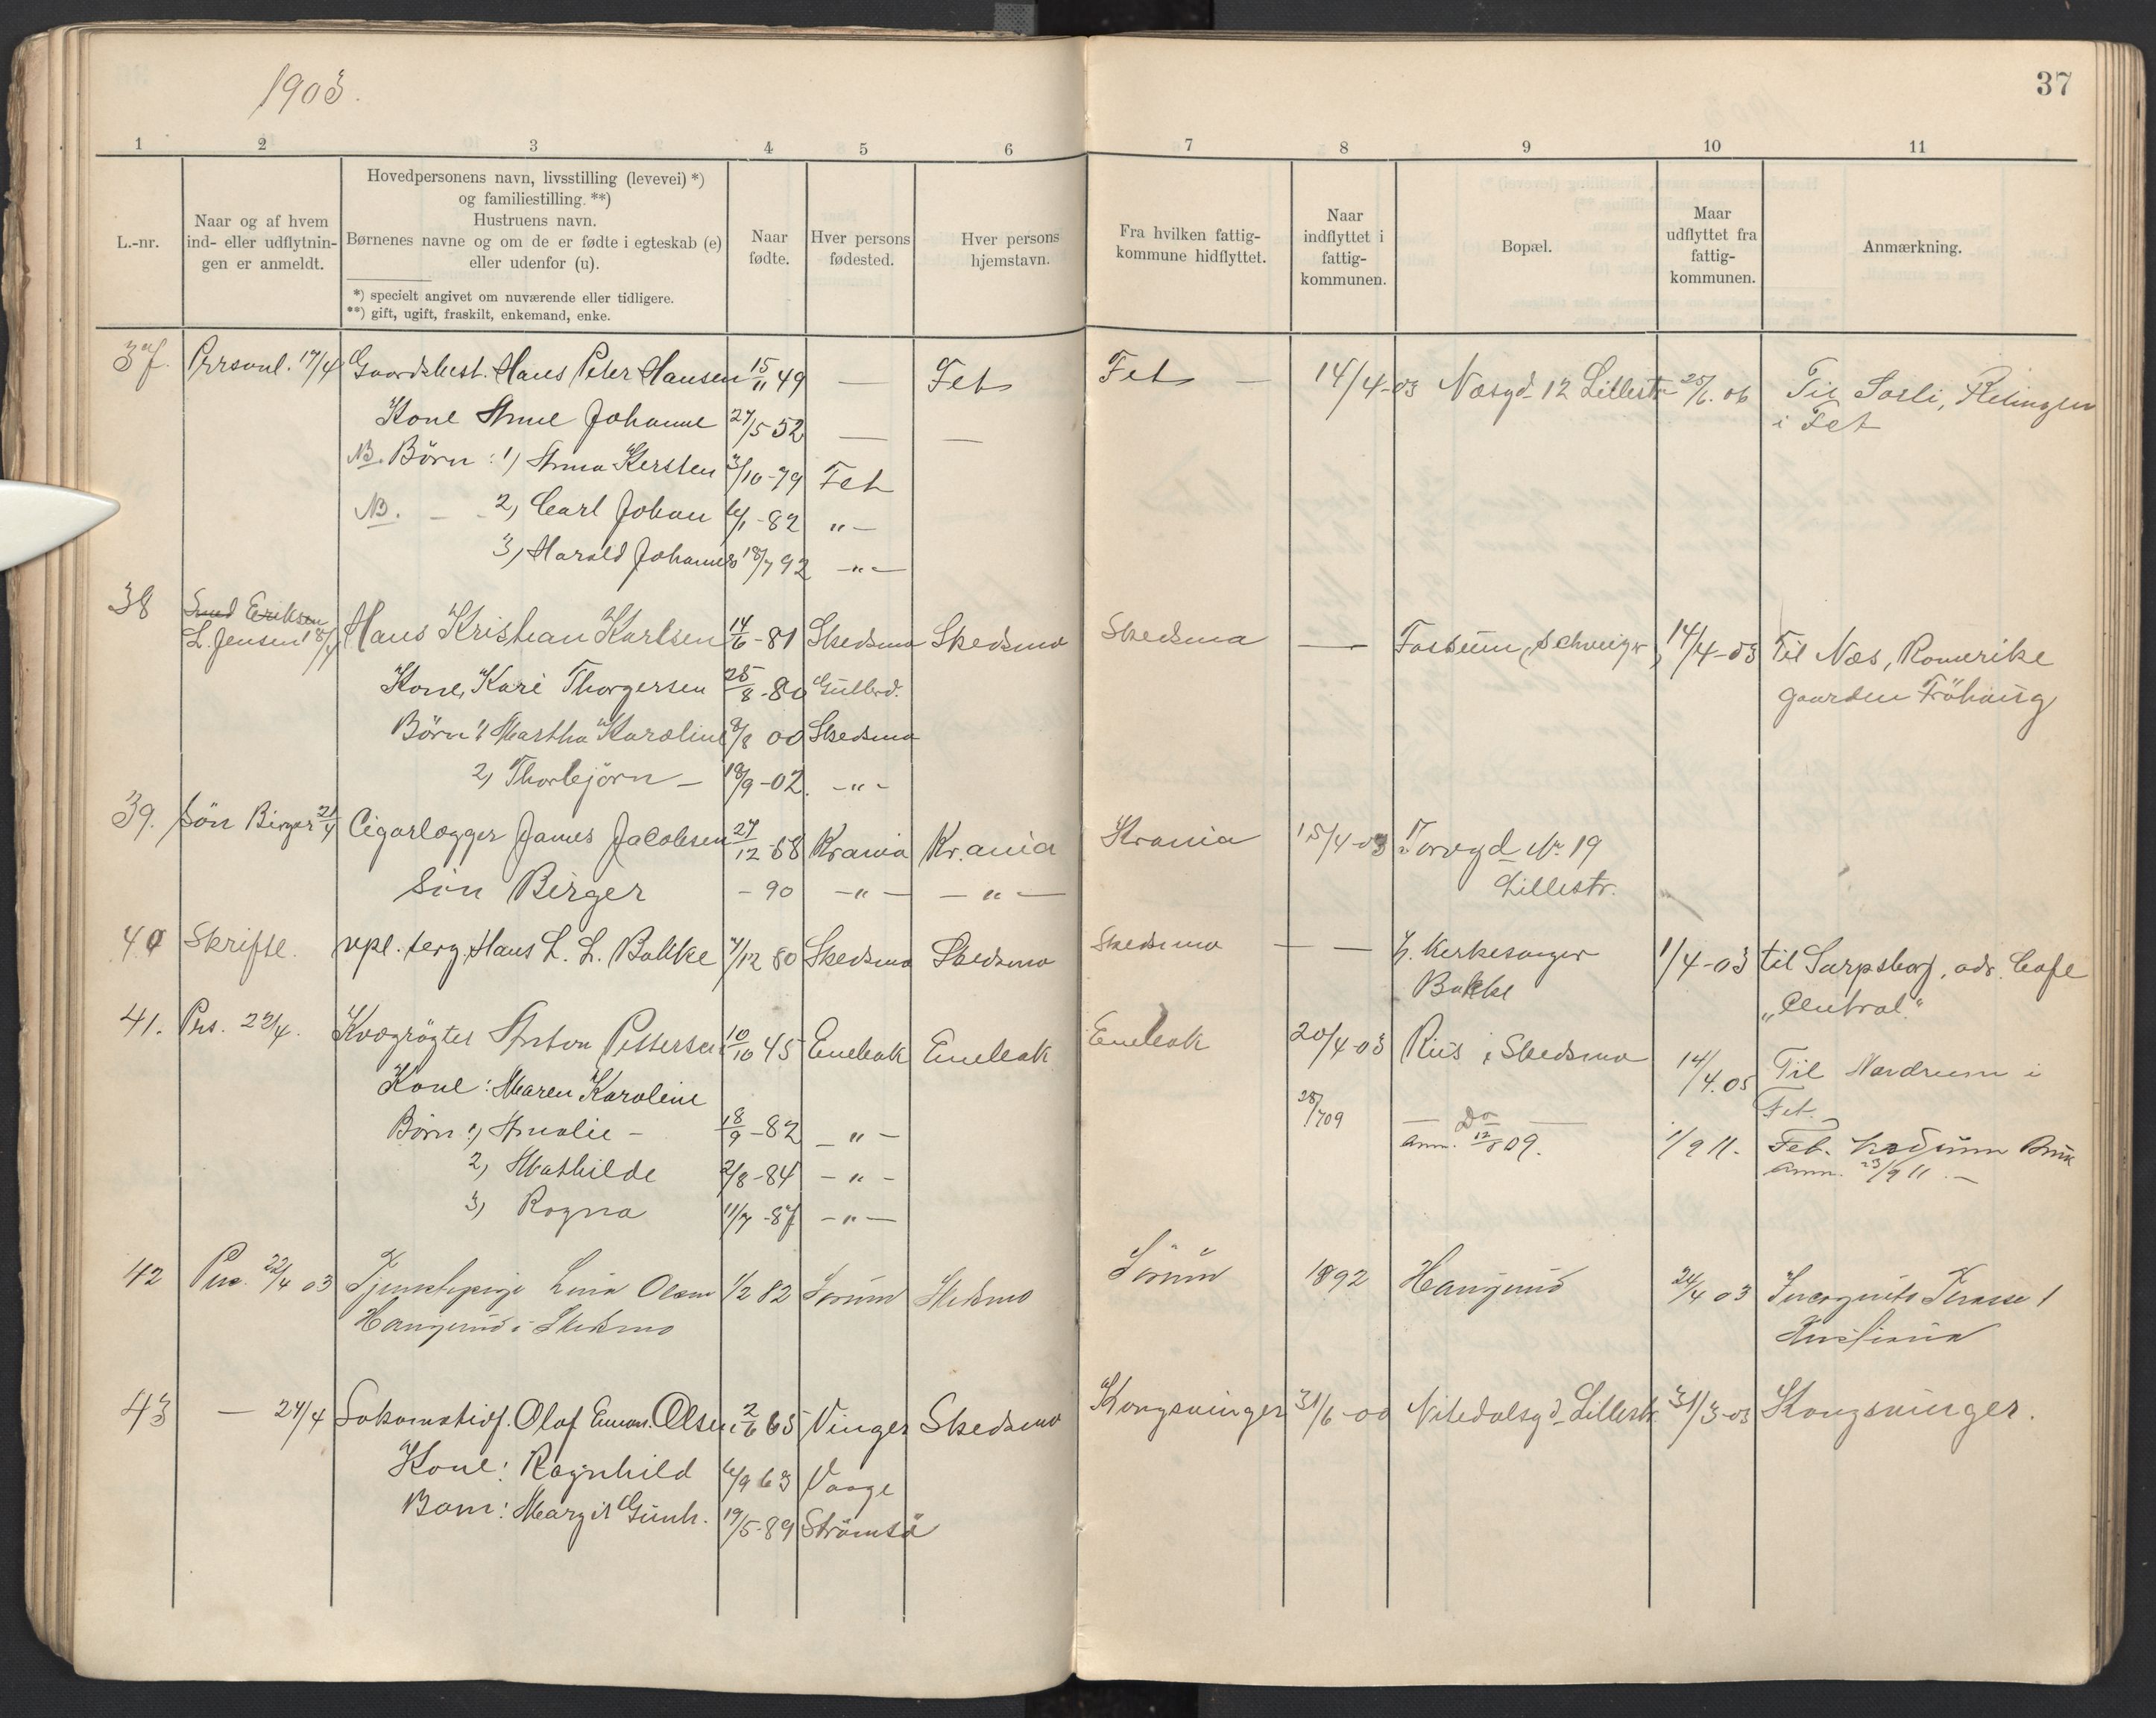 1903.
37
1 2 3 4 5 6 7 8 9 10 11
L.-nr.
Naar og af hvem
ind- eller udflytnin-
gen er anmeldt.
Hovedpersonens navn, livsstilling (levevei) *)
og familiestilling. **)
Hustruens navn.
Børnenes navne og om de er fødte i egteskab (e)
eller udenfor (u).
*) specielt angivet om nuværende eller tidligere.
**) gift, ugift, fraskilt, enkemand, enke.
Naar
fødte.
Hver persons
fødested.
Hver persons
hjemstavn.
Fra hvilken fattig-
kommune hidflyttet.
Naar
indflyttet i
fattig-
kommunen.
Bopæl.
Maar
udflyttet fra
fattig-
kommunen.
Anmærkning.
37. Personl. 17/4 Gaardsbest. Hans Peter Hansen 15/11 49 — Fet Fet — 14/4-03 Næsgd 12 Lillestr 25/6. 06 Til Sorli, Relingen
i Fet
Kone Anne Johanne 27/5 52 — —
NB. Børn: 1) Anna Kersten 3/10-79 Fet
NB. — - 2, Carl Johan 6/1-82 " —
3, Harald Johannes 18/7 92 -"-
38 Smed Eriksen
L. Jensen 18/4 Hans Kristian Karlsen 14/6-81 Skedsmo Skedsmo Skedsmo — Fossum, Schweiger, 14/4-03 Til Næs, Romerike
gaarden Fröhaug
Kone, Kari Thorgersen 28/8-80 Gulbrd.
Børn 1) Martha Karoline 9/8 00 Skedsmo
2, Thorbjörn — 18/9-02. -"-
39. Sön Birger 21/4 Cigarlægger James Jacobsen 27/12-68 Krania Kr.ania Krania 15/4-03 Torvgd No 19
Lillestr.
Sön Birger - 90 -"- — " —
40 Skriftl. vpl. serg. Hans L. L. Bakke 7/12 80 Skedsmo Skedsmo Skedsmo — — h. Kirkesanger
Bakke 1/4-03 til Sarpsborg, adr. Cafe
„Central."
41. Prs. 22/4. Kvægrögter Anton Pettersen 10/10 45 Enebak Enebak Enebak 20/4-03 Riis i Skedsmo 14/4.05 Til Nordrum i
Fet.
Kone: Maren Karoline
Børn 1) Amalie — 18/9-82 -"- 28/7 09 — Do —
Anm. 12/8 09. 1/9 11. Fet.
Anm. 23/9 11. —
2, Mathilde 2/8-84 -"-
3, Ragna 11/7-87 -"-
42 Prs. 22/4 03 Tjenestepige Lina Olsen 1/2 82 Sörum Skedsmo Sörum 1892 Haugerud 24/4 03 Incognito Terasse 1
Kristiania
Haugerud i Skedsmo
43 — 24/4 Lokomotivf. Olaf Eman. Olsen 2/6 65 Vinger Skedsmo Kongsvinger 31/6-00 Nitedalsgd Lillestr 31/3-03 Kongsvinger.
Kone: Ragnhild 6/9 63 Vaage
Barn: Margit Gunh. 19/5-89 Strömsö